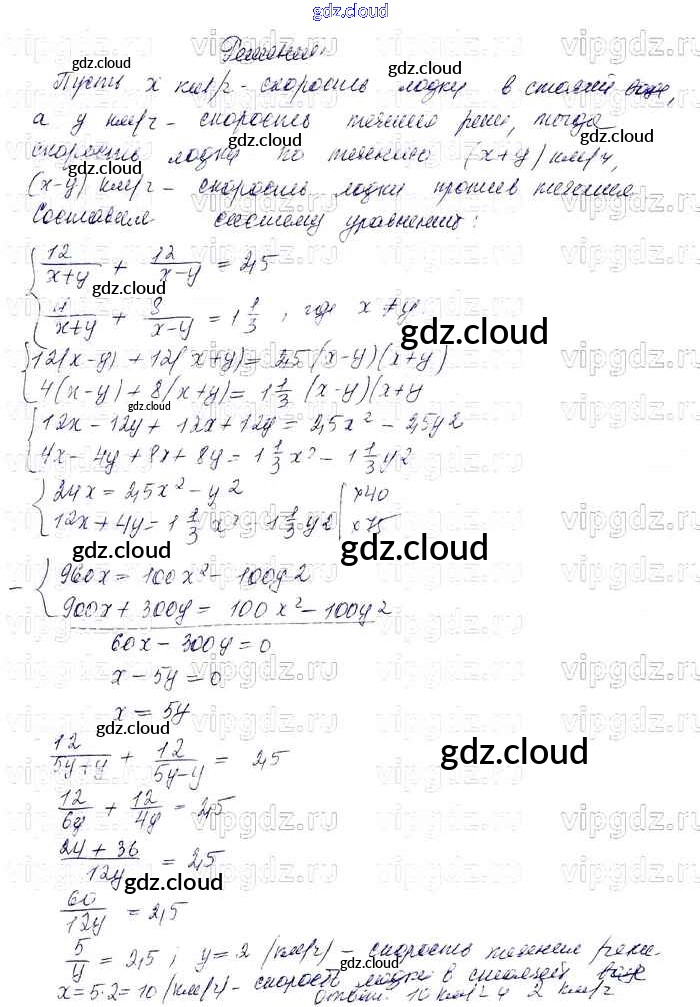 gdz.cloud
Решение.
Пусть x км/ч - скорость лодки в стоячей воде,
а y км/ч - скорость течения реки, тогда
скорость лодки по течению (x+y) км/ч,
(x-y) км/ч - скорость лодки против течения
Составим систему уравнений:
12/(x+y) + 12/(x-y) = 2,5
4/(x+y) + 8/(x-y) = 1 1/3, где x ≠ y.
12(x-y) + 12(x+y) = 2,5(x-y)(x+y)
4(x-y) + 8(x+y) = 1 1/3 (x-y)(x+y
12x - 12y + 12x + 12y = 2,5x² - 2,5y2
4x - 4y + 8x + 8y = 1 1/3 x² - 1 1/3 y2
24x = 2,5x² - y2 | x40
12x + 4y = 1 1/3 x² - 1 1/3 y2 | x75
- 960x = 100x² - 100y2
900x + 300y = 100x² - 100y2
60x - 300y = 0
x - 5y = 0
x = 5y
12/(5y+y) + 12/(5y-y) = 2,5
12/6y + 12/4y = 2,5
(24 + 36)/12y = 2,5
60/12y = 2,5
5/y = 2,5; y = 2 (км/ч) - скорость течения реки.
x = 5·2 = 10 (км/ч) - скорость лодки в стоячей воде
Ответ: 10 км/ч и 2 км/ч